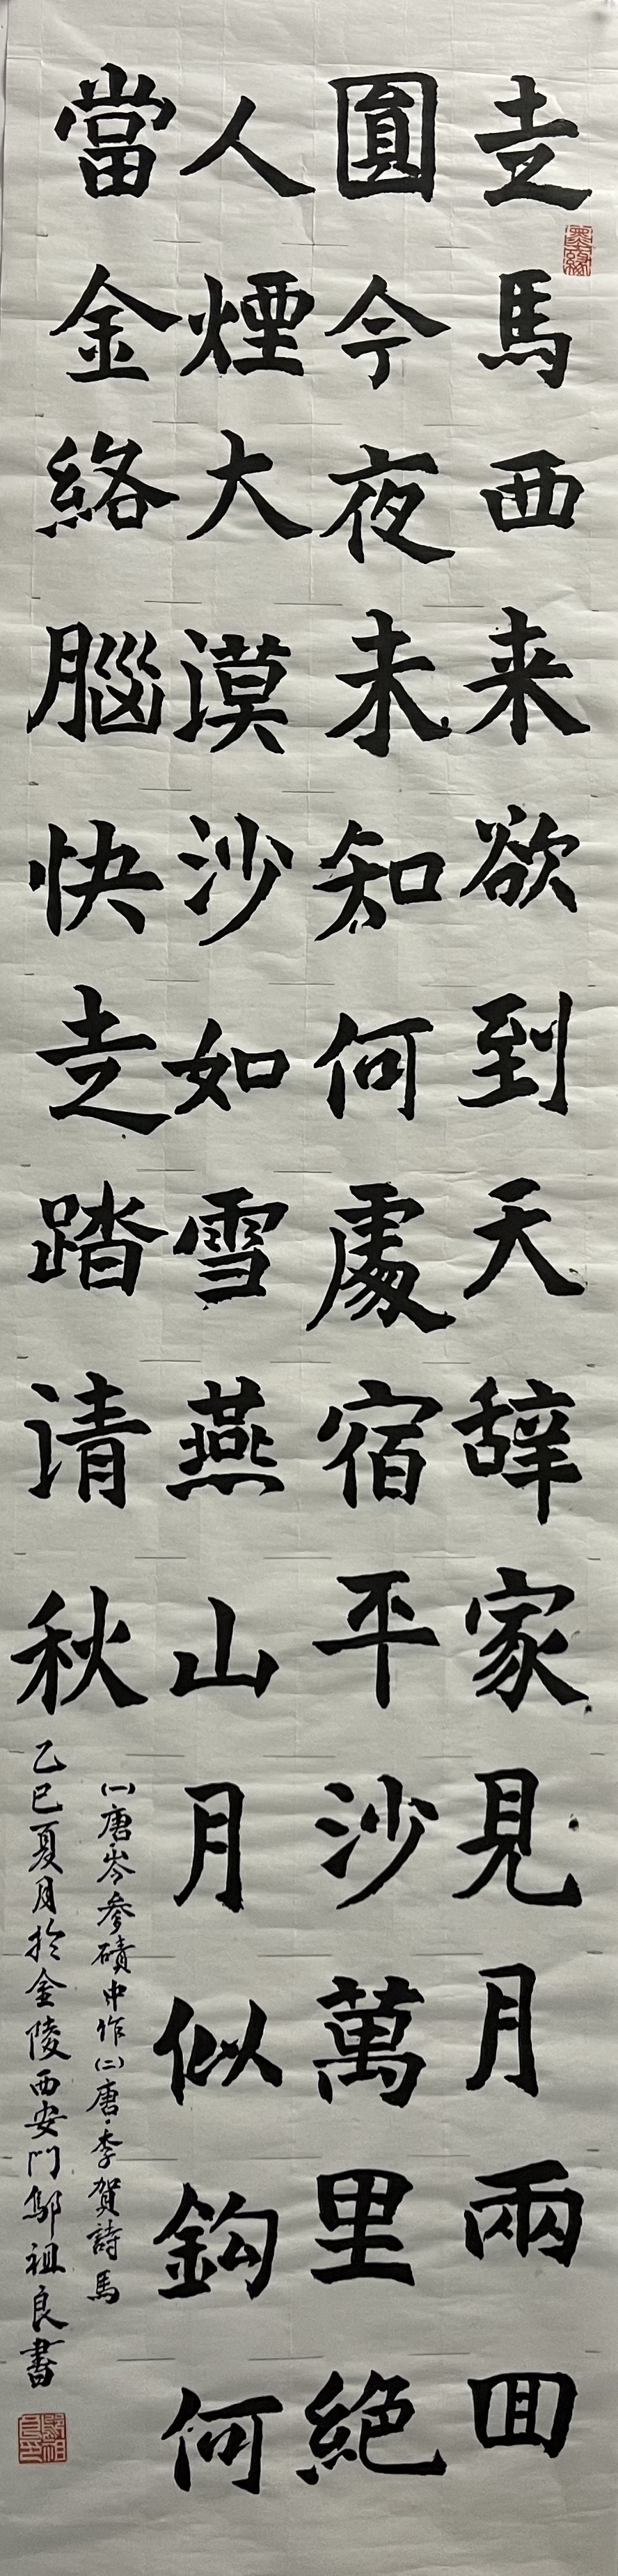 走馬西来欲到天辞家見月兩回
圓今夜未知何處宿平沙萬里絶
人煙大漠沙如雪燕山月似鈎何
當金絡腦快走踏清秋
(一)唐·岑參磧中作(二)唐·李賀詩馬
乙巳夏月於金陵西安門鄔祖良書